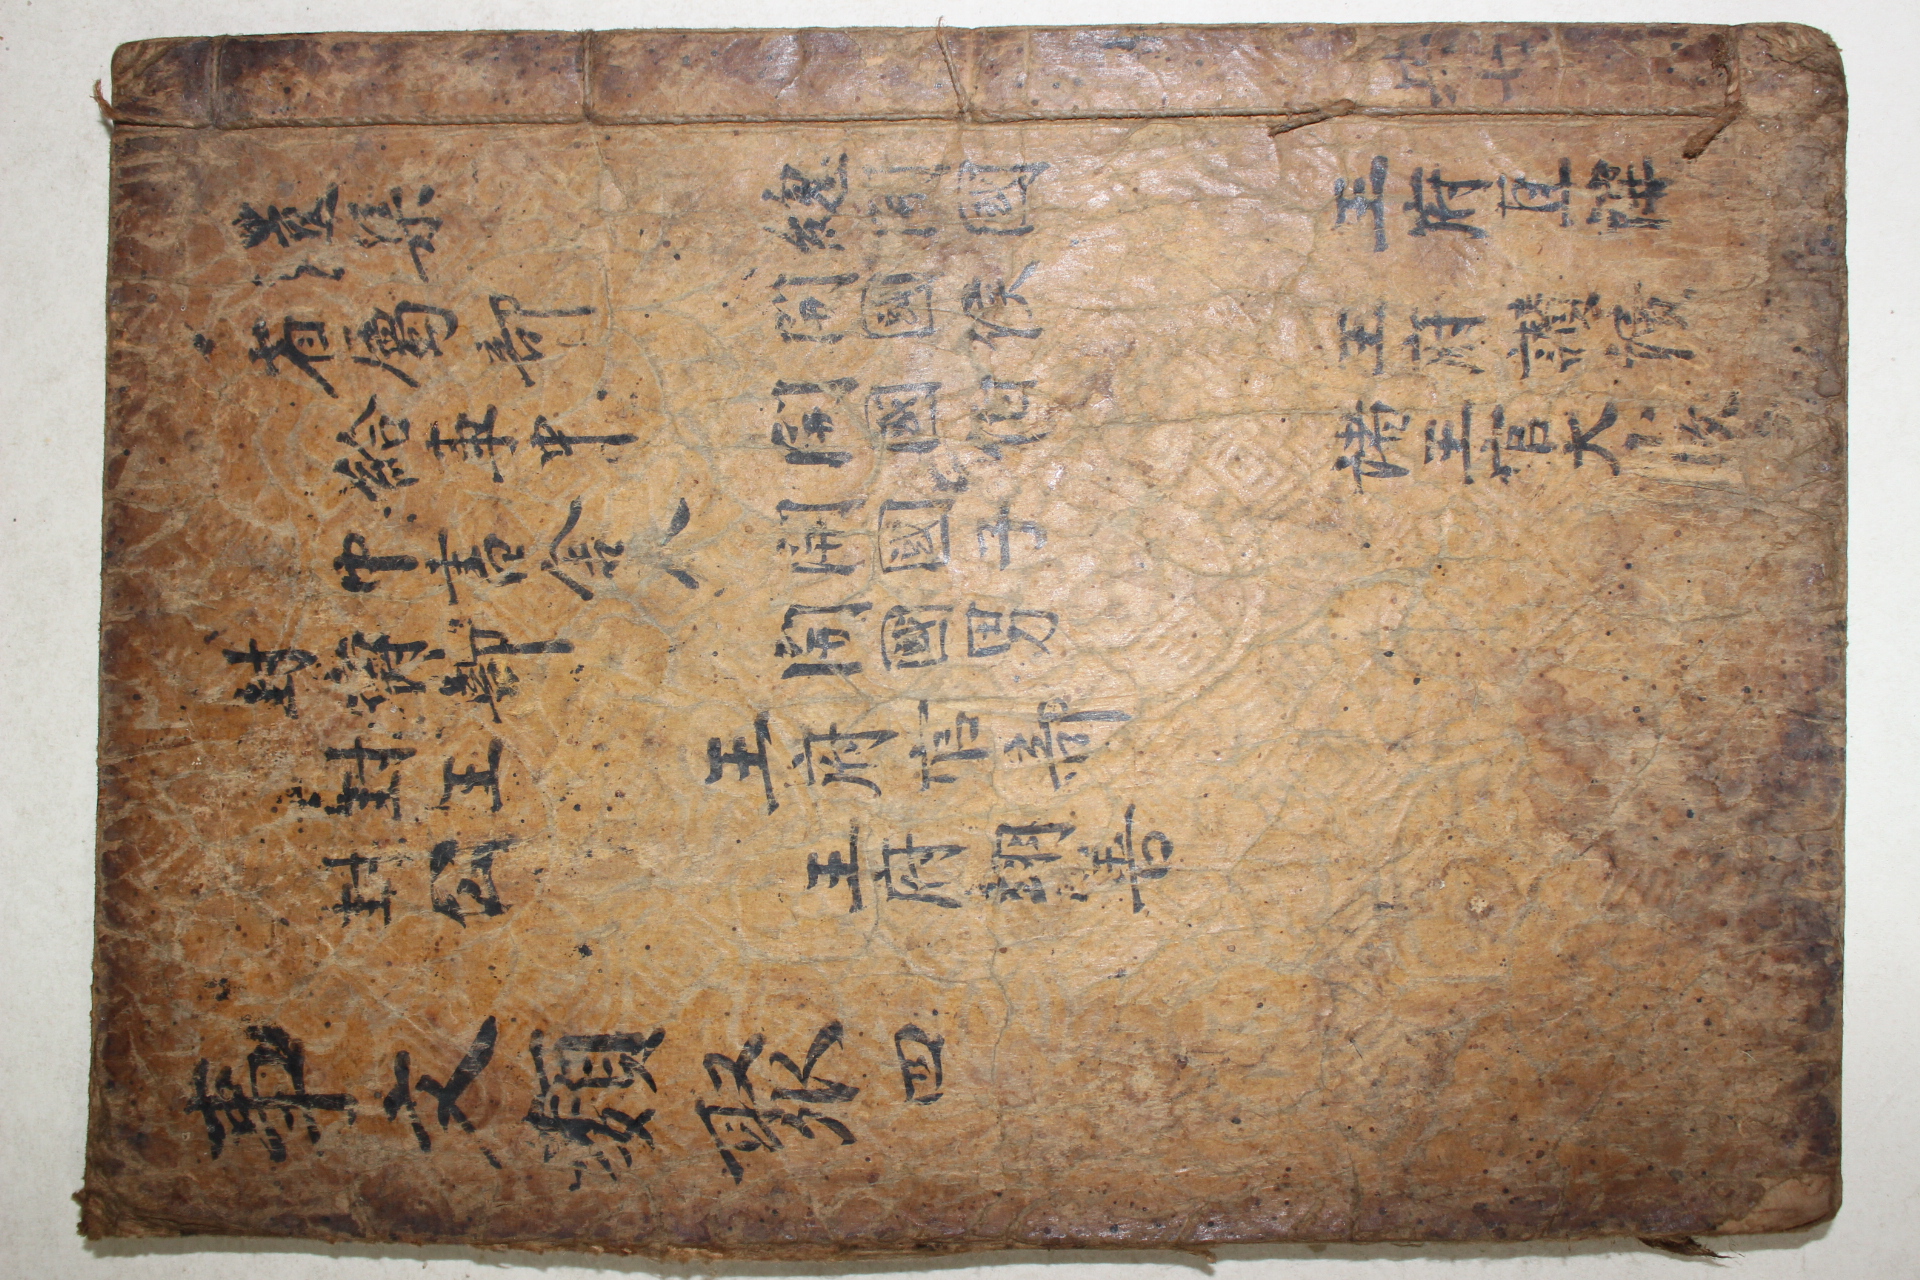 事文類聚 四
遺集
省屬部
給事中
中書舍人
封爵部
封王
封公
總開國
開國侯
開國伯
開國子
開國男
王府官部
王府翊善
王府直講
王府讃讀
諸王宮大小教